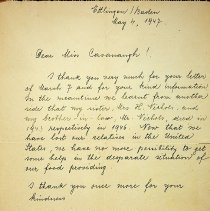 Ettlingen / Baden
May 4, 1947.
Dear Miss Cavanaugh!
I thank you very much for your letter
of March 7 and for your kind information
In the meantime we learned from another
side that my sister, Mrs. H. Nichols, and
my brother-in-law, Mr. Nichols, died in
1941 respectively in 1945. Now that we
have lost our relatives in the United
States, we have no more possibility to get
some help in the desperate situation of
our food providing.
I thank you once more for your
kindness